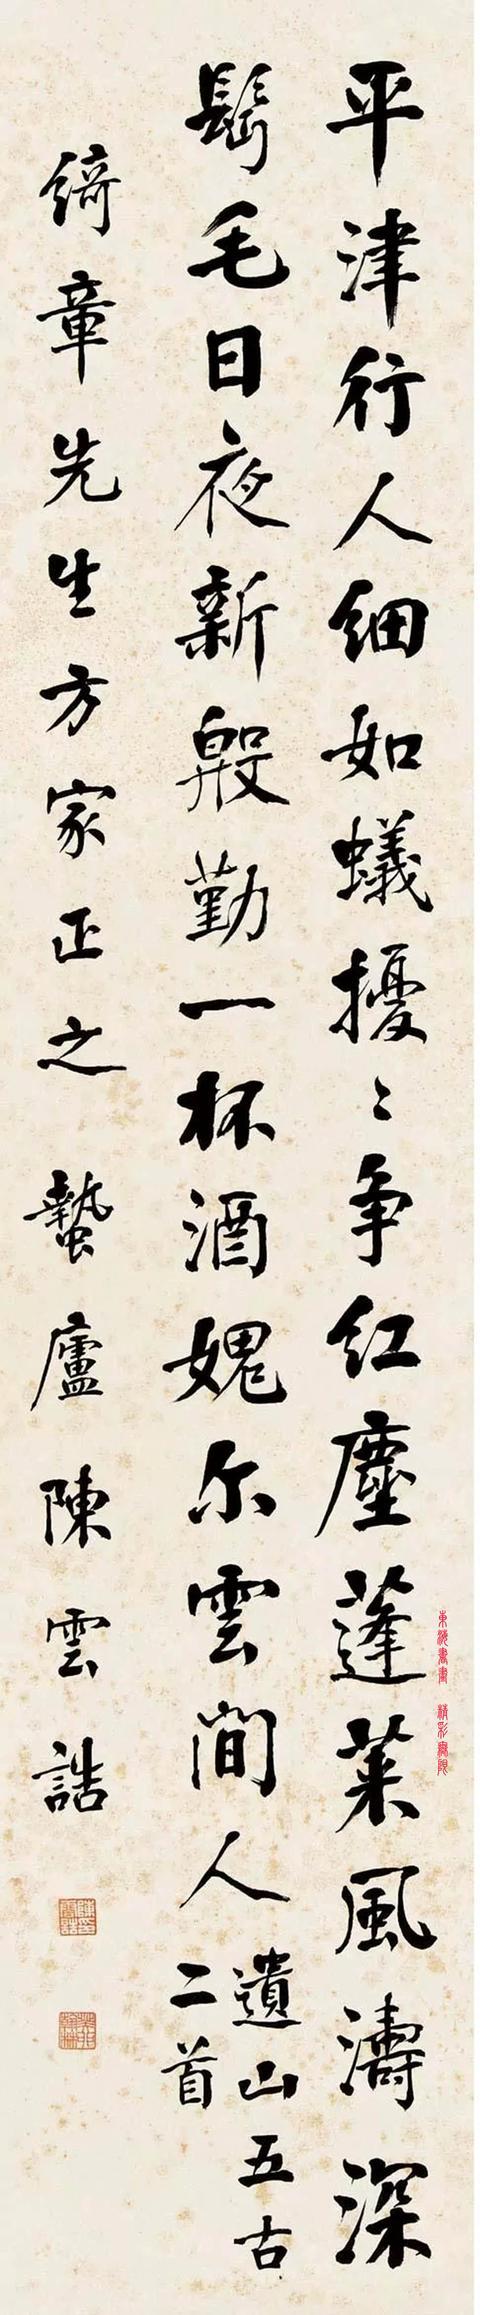 平津行人細如蟻擾〻争紅塵蓬萊風濤深
鬓毛日夜新殷勤一杯酒媿尔雲間人
遺山五古
二首
綺章先生方家正之 蟄廬陳雲誥
東海書畫 精彩無限